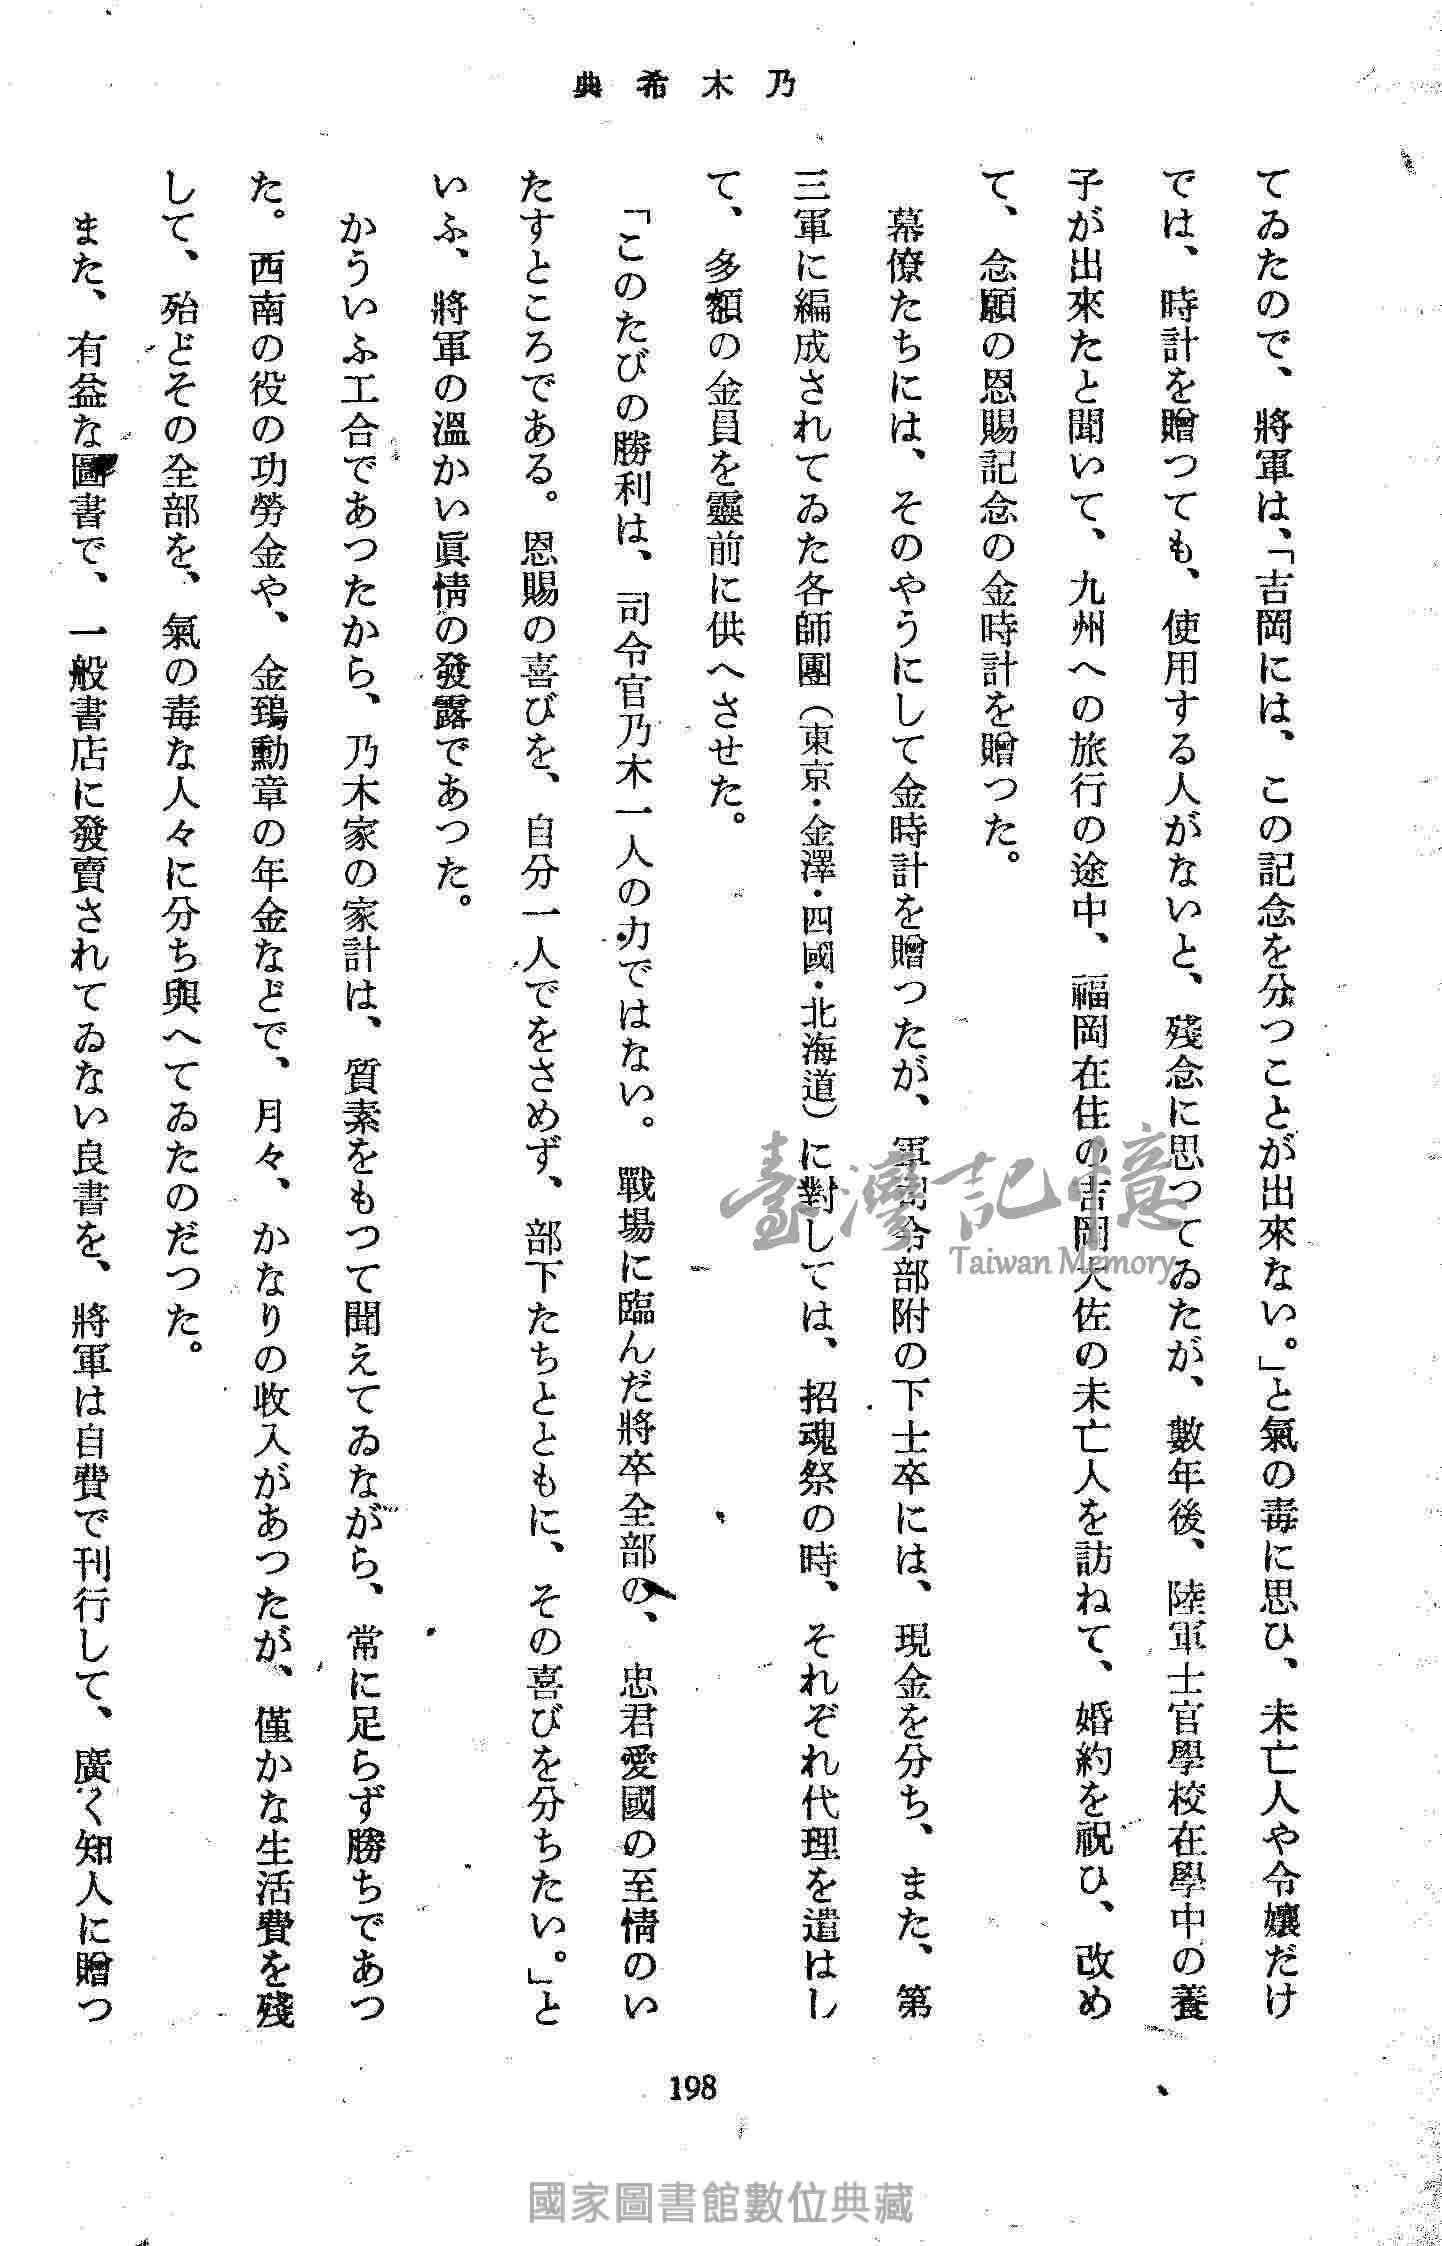 乃木希典
てゐたので、將軍は、「吉岡には、この記念を分つことが出來ない。」と氣の毒に思ひ、未亡人や令孃だけ
では、時計を贈つても、使用する人がないと、殘念に思つてゐたが、數年後、陸軍士官學校在學中の養
子が出來たと聞いて、九州への旅行の途中、福岡在住の吉岡大佐の未亡人を訪ねて、婚約を祝ひ、改め
て、念願の恩賜記念の金時計を贈つた。
幕僚たちには、そのやうにして金時計を贈つたが、軍司令部附の下士卒には、現金を分ち、また、第
三軍に編成されてゐた各師團(東京・金澤・四國・北海道)に對しては、招魂祭の時、それぞれ代理を遣はし
て、多額の金員を靈前に供へさせた。
「このたびの勝利は、司令官乃木一人の力ではない。戰場に臨んだ將卒全部の、忠君愛國の至情のい
たすところである。恩賜の喜びを、自分一人でをさめず、部下たちとともに、その喜びを分ちたい。」と
いふ、將軍の溫かい眞情の發露であつた。
かういふ工合であつたから、乃木家の家計は、質素をもつて聞えてゐながら、常に足らず勝ちであつ
た。西南の役の功勞金や、金鵄勳章の年金などで、月々、かなりの收入があつたが、僅かな生活費を殘
して、殆どその全部を、氣の毒な人々に分ち與へてゐたのだつた。
また、有益な圖書で、一般書店に發賣されてゐない良書を、將軍は自費で刊行して、廣く知人に贈つ
198
臺灣記憶
Taiwan Memory
國家圖書館數位典藏